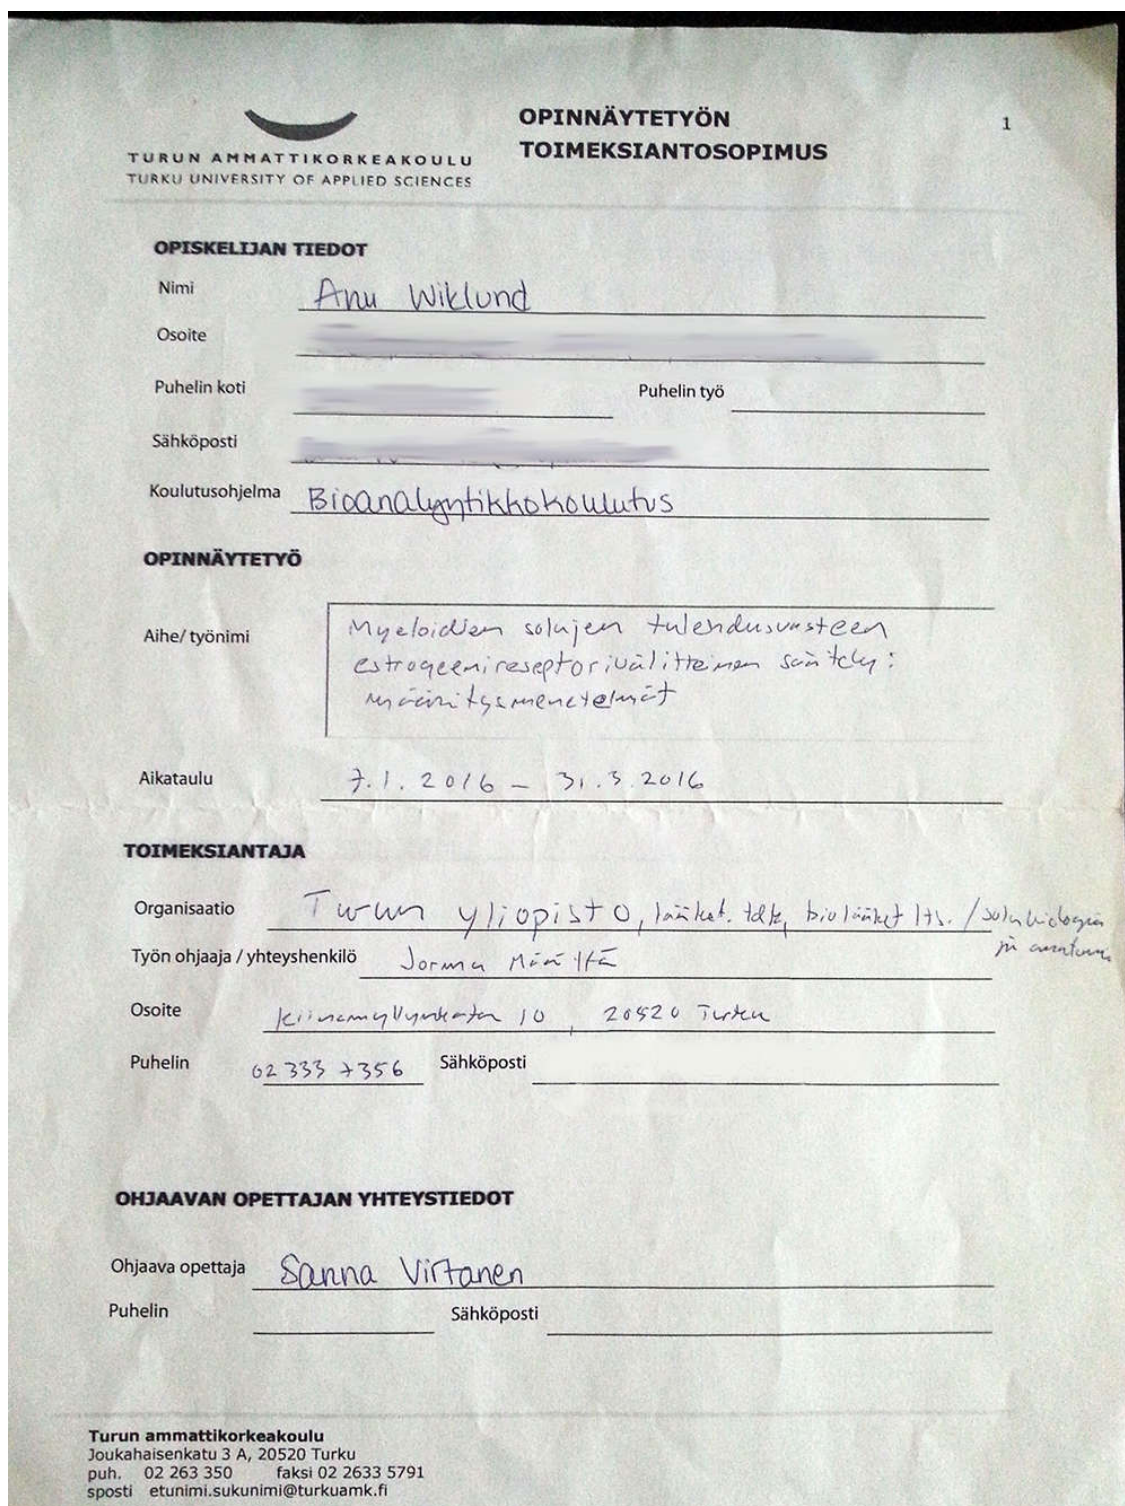 TURUN AMMATTIKORKEAKOULU
TURKU UNIVERSITY OF APPLIED SCIENCES
OPINNÄYTETYÖN
TOIMEKSIANTOSOPIMUS
1
OPISKELIJAN TIEDOT
Nimi Anu Wiklund
Osoite
Puhelin koti Puhelin työ
Sähköposti
Koulutusohjelma Bioanalyytikkokoulutus
OPINNÄYTETYÖ
Aihe/ työnimi
Myeloidien solujen tulehdusvasteen
estrogeenireseptorivälitteinen säätely:
määritysmenetelmät
Aikataulu 7.1.2016 – 31.3.2016
TOIMEKSIANTAJA
Organisaatio Turun yliopisto, lääket. tdk, biolääket lts. / solubiologia
ja anatomia
Työn ohjaaja / yhteyshenkilö Jorma Määttä
Osoite Kiinamyllynkatu 10, 20520 Turku
Puhelin 02 333 7356 Sähköposti
OHJAAVAN OPETTAJAN YHTEYSTIEDOT
Ohjaava opettaja Sanna Virtanen
Puhelin Sähköposti
Turun ammattikorkeakoulu
Joukahaisenkatu 3 A, 20520 Turku
puh. 02 263 350 faksi 02 2633 5791
sposti etunimi.sukunimi@turkuamk.fi